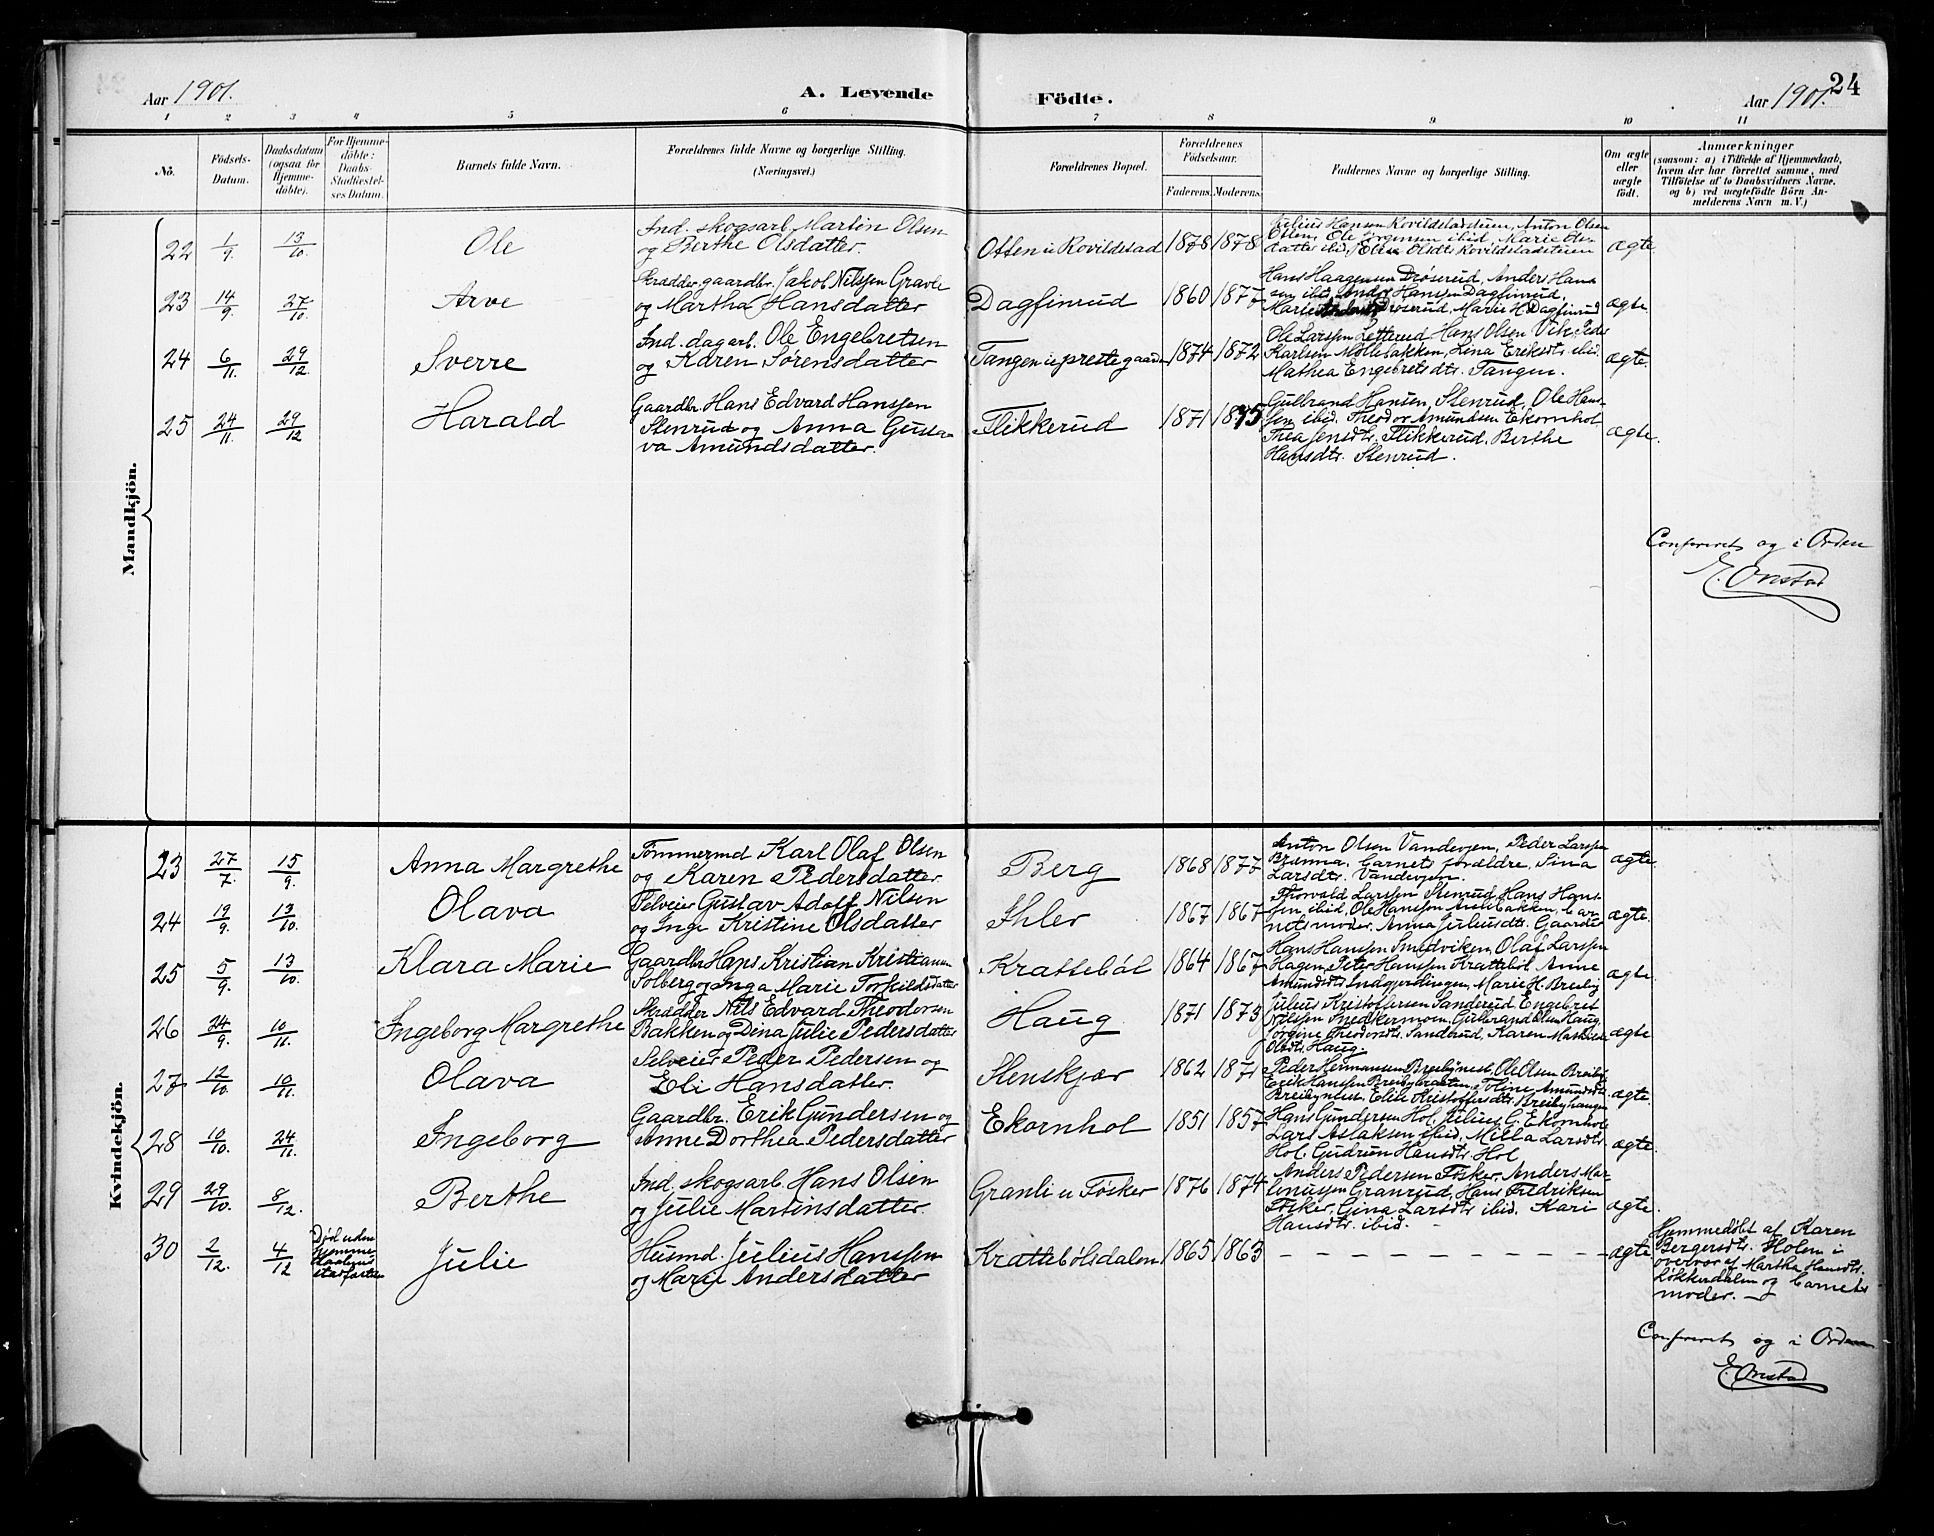 Aar 1901.
A. Levende Födte.
Aar 1901. 24
1 2 3 4 5 6 7 8 9 10 11
No.
Födsels-Datum.
Daabsdatum (ogsaa för Hjemme-döbte).
For Hjemme-döbte: Daabs-Stadfæstel-ses Datum.
Barnets fulde Navn.
Forældrenes fulde Navne og borgerlige Stilling. (Næringsvei.)
Forældrenes Bopæl.
Forældrenes Födselsaar.
Faderens. Moderens.
Faddernes Navne og borgerlige Stilling.
Om ægte eller uægte födt.
Anmærkninger
(saasom: a) i Tilfælde af Hjemmedaab,
hvem der har forrettet samme, med
Tilföielse af to Daabsvidners Navne,
og b) ved uægtefödte Börn An-
melderens Navn m. V.)
Mandkjön.
22 1/9. 13/10 Ole
Ind. skogsarb. Martin Olsen
og Berthe Olsdatter.
Otten u Rovildstad 1878 1878
Julius Hansen Rovildstadstuen, Anton Olsen
Otten, Ole Jörgensen ibid, Marie Ols-
datter ibid, Olsdtr Rovildstadstuen
ægte
23 14/9. 27/10. Arve
Skrædder, gaardbr. Jakob Nilssen Gravli
og Martha Hansdatter
Dagfinrud 1860 1877
Hans Haagensen Dröserud, Anders Han-
sen ibid, Hanssen Dagfinrud,
Marie Dröserud, Marie H. Dagfinrud
ægte
24 6/11. 29/12. Sverre
Ind. dagarb. Ole Engebretsen
og Karen Sørensdatter
Tangen u prestegaarden 1874 1872
Ole Larssen Letterud, Hans Olsen Vik, Peder
Karlsen Møllebakken, Lina Eriksdtr ibid.
Mathea Engebretsdtr. Tangen.
ægte.
25 24/11. 29/12 Harald
Gaardbr. Hans Edvard Hanssen
Stenrud og Anna Gusta-
va Amundsdatter.
Flikkerud 1871 1875
Gulbrand Hansen, Stenrud, Ole Hans-
sen ibid. Theodor Amundsen Ekornhol,
Thea Jensdtr. Flikkerud, Berthe
Hansdtr. Stenrud.
ægte.
Confereret og i Orden
E. Onstad
Kvindekjön.
23 27/7. 15/9. Anna Margrethe
Tömmermd Karl Olaf Olsen
og Karen Pedersdatter
Berg 1868 1877
Anton Olsen Vandevjen, Peder Larssen
Brænna, Barnets forældre, Sina
Larsdtr. Vandevjen.
ægte
24 19/9. 13/10. Olava
Selveier Gustav Adolf Nilsen
og Inga Kristine Olsdatter
Ihler 1867 1867
Thorvald Larssen Stenrud, Hans Hans-
sen ibid, Ole Hanssen bakken, bar-
nets moder, Anna Juliusdtr. Gaarder
ægte.
25 5/9. 13/10. Klara Marie
Gaardbr Hans Kristian Kristiansen
Solberg og Inga Marie Torkildsdatter
Krattebøl 1864 1867
Hans Hanssen Smedviken, Olaf Larssen
Hagen, Peter Hanssen Krattebøl, Anne
Amundsdtr Indgjerdingen, Marie H. Breiby
ægte.
26 24/9. 10/11. Ingeborg Margrethe
Skrædder Nils Edvard Theodorsen
Bakken og Dina Julie Pedersdatter
Haug 1871 1873
Julius Kristoffersen Sanderud, Engebret
Nilssen Snedkermoen, Gulbrand Olsen Haug,
Jørgine Theodorsdtr. Sandbrud, Karen Mathilde
Olsdtr. Haug.
ægte
27 12/10. 10/11. Olava
Selveier Peder Pedersen og
Eli Hansdatter.
Stenskjær 1862 1871
Peder Hermansen Breibynest, Ole Olsen Breiby
Erik Hanssen Breibybraaten, Toline Amundsdtr.
Breibynest, Elise Kristoffersdtr. Breibyhaugen
ægte.
28 10/10. 24/11. Ingeborg
Gaardbr. Erik Gundersen og
Anne Dorthea Pedersdatter
Ekornhol 1851 1857
Hans Gundersen Hol, Julius G. Ekornhol
Lars Aslaksen ibid, Milla Larsdtr
Hol, Gudrun Hansdtr. Hol
ægte
29 29/10. 8/12. Berthe
Ind. skogsarb. Hans Olsen
og Julie Martinsdatter
Granli u Føsker 1876 1874
Anders Pedersen Føsker, Anders Mar-
tinussen Granrud, Hans Fredriksen
Føsker, Gina Larsdtr ibid. Kari
Hansdtr. ibid.
ægte.
30 2/12. 4/12 Död uden hjemme- daabens stadfæstelse
Julie
Husmd. Julius Hanssen
og Marie Andersdatter
Krattebølsdalen 1865 1863
– – – – – – – – – – ægte
Hjemmedøbt af Karen
Bergersdtr. Holm i
overvær af Martha Hansdtr.
Løkkendalen og barnets
moder. —
Confereret og i Orden
E. Onstad